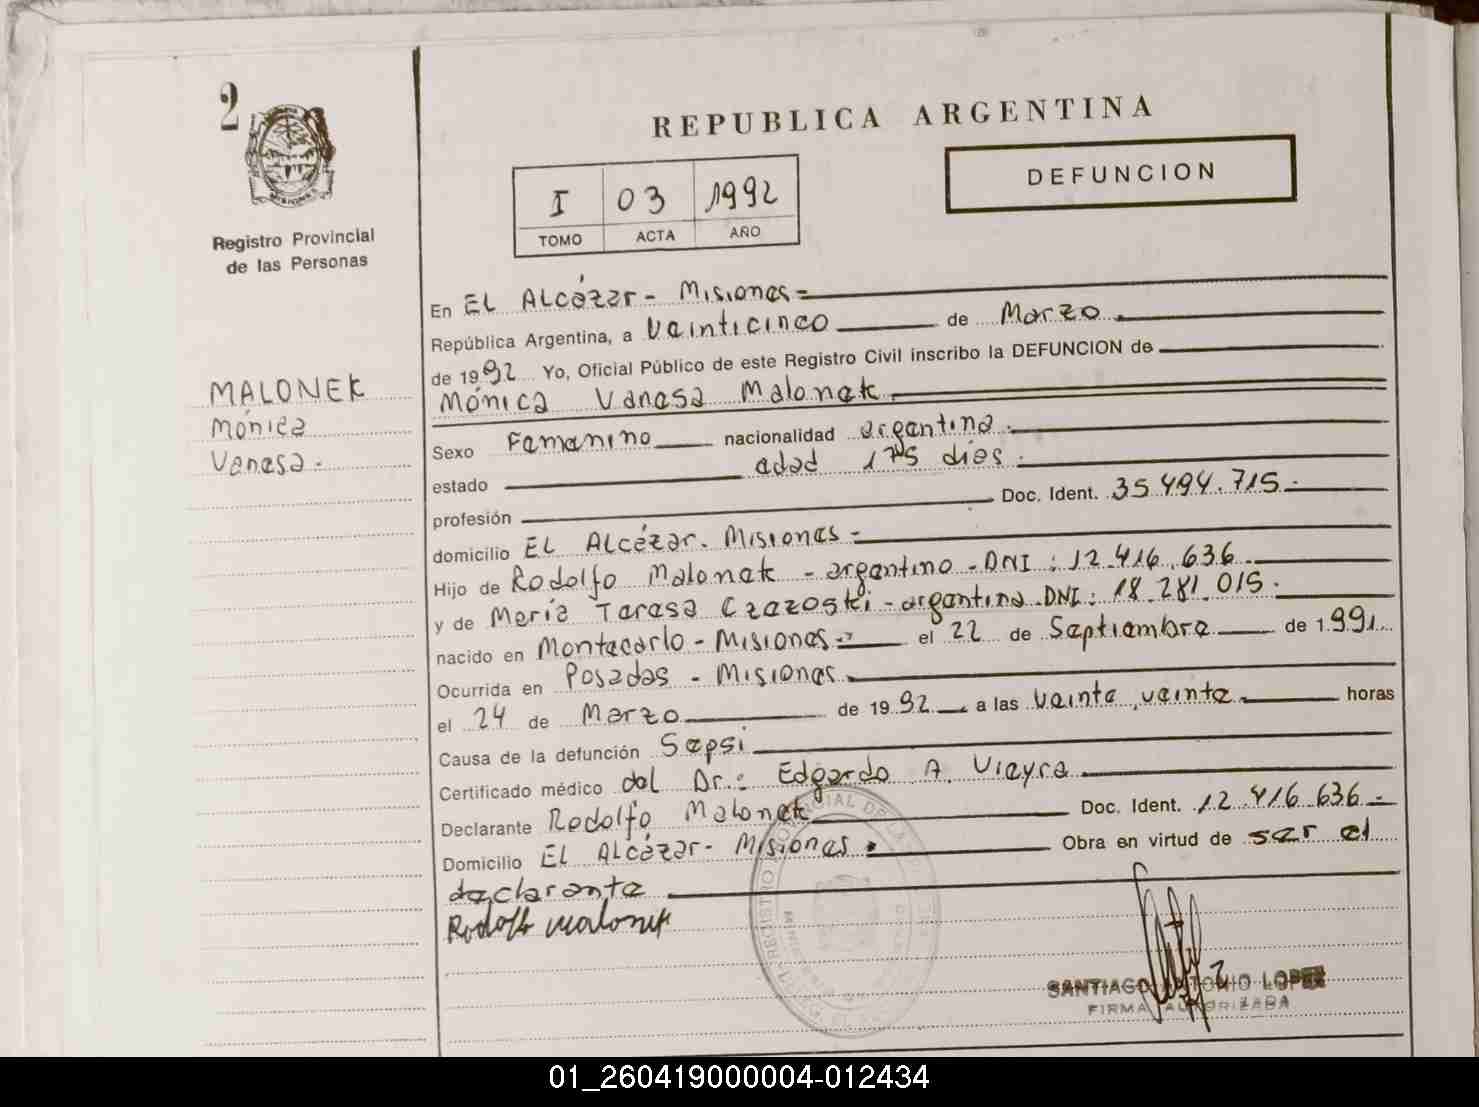 2
Registro Provincial
de las Personas
MALONEK
Mónica
Vanesa.
REPUBLICA ARGENTINA
DEFUNCION
I 03 1992
TOMO ACTA AÑO
En EL Alcázar - Misiones=
República Argentina, a Veinticinco de Marzo
de 1992 Yo, Oficial Público de este Registro Civil inscribo la DEFUNCION de
Mónica Vanesa Malonek
Sexo Femenino nacionalidad argentina.
estado edad 175 días.
profesión Doc. Ident. 35.494.715.
domicilio EL Alcázar. Misiones=
Hijo de Rodolfo Malonek - argentino - DNI: 12.416.636
y de María Teresa Czazoski - argentina. DNI: 18.281.015.
nacido en Montecarlo - Misiones= el 22 de Septiembre de 1.991.
Ocurrida en Posadas - Misiones.
el 24 de Marzo de 1992 a las Veinte, veinte. horas
Causa de la defunción Sepsi
Certificado médico del Dr.: Edgardo A. Vieyra
Declarante Rodolfo Malonek Doc. Ident. 12.416.636.=
Domicilio EL Alcázar - Misiones. Obra en virtud de ser el
declarante
Rodolfo Malonek
SANTIAGO ANTONIO LOPEZ
FIRMA AUTORIZADA
01_260419000004-012434